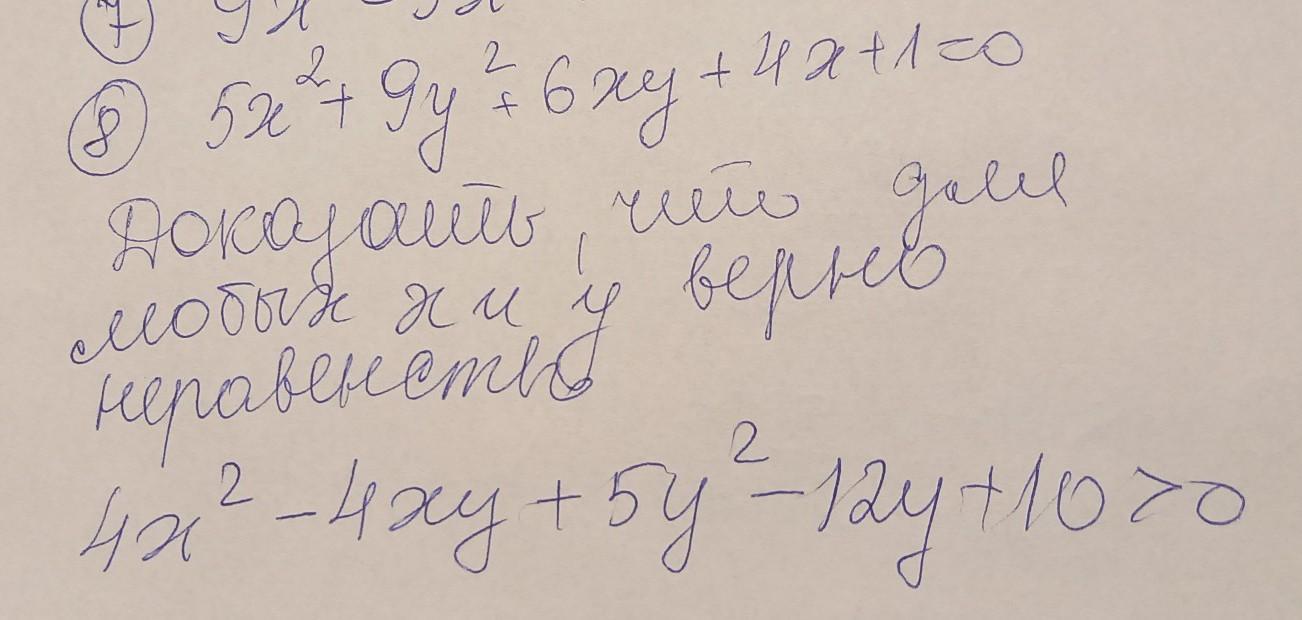 ⑦ 9x
⑧ 5x² + 9y² + 6xy + 4x + 1 = 0
Доказать, что для
любых x и y верно
неравенство
4x² - 4xy + 5y² - 12y + 10 > 0